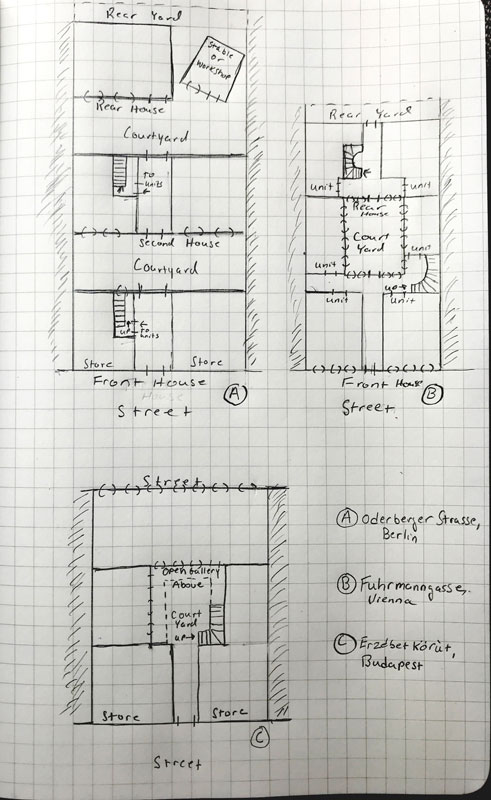 Rear Yard
Stable
or
Workshop
Rear House
Courtyard
TO
units
Second House
Courtyard
up
TO
units
Store
Store
Front House
Street
A
Rear Yard
unit
unit
Rear
House
Court
Yard
unit
unit
up
unit
unit
Front House
Street
B
Street
Open Gallery
Above
Court
Yard
up
Store
Store
C
Street
A Oderberger Strasse,
Berlin
B Fuhrmanngasse,
Vienna
C Erzébet Körùt,
Budapest